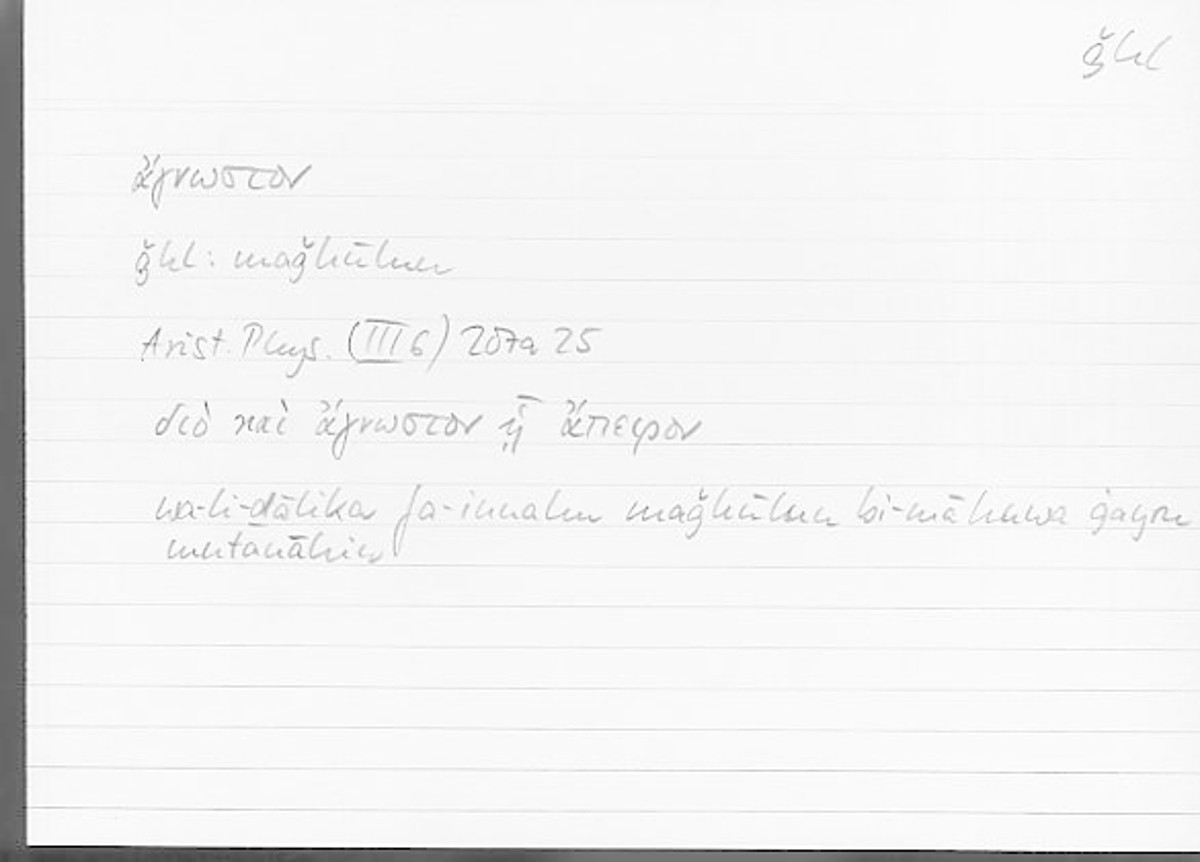 ǧhl
ἄγνωστον
ǧhl: maǧhūlun
Arist. Phys. (III 6) 207a 25
διὸ καὶ ἄγνωστον ᾗ ἄπειρον
wa-li-ḏālika fa-innahu maǧhūlun bi-mā huwa ġayru
mutanāhin